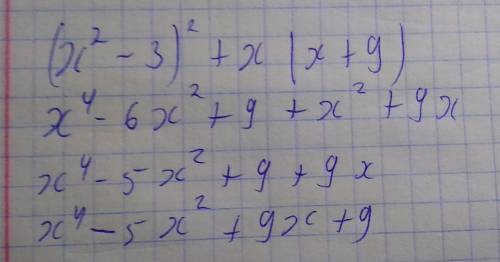 (x² - 3)² + x (x + 9)
x⁴ - 6x² + 9 + x² + 9x
x⁴ - 5x² + 9 + 9x
x⁴ - 5x² + 9x + 9